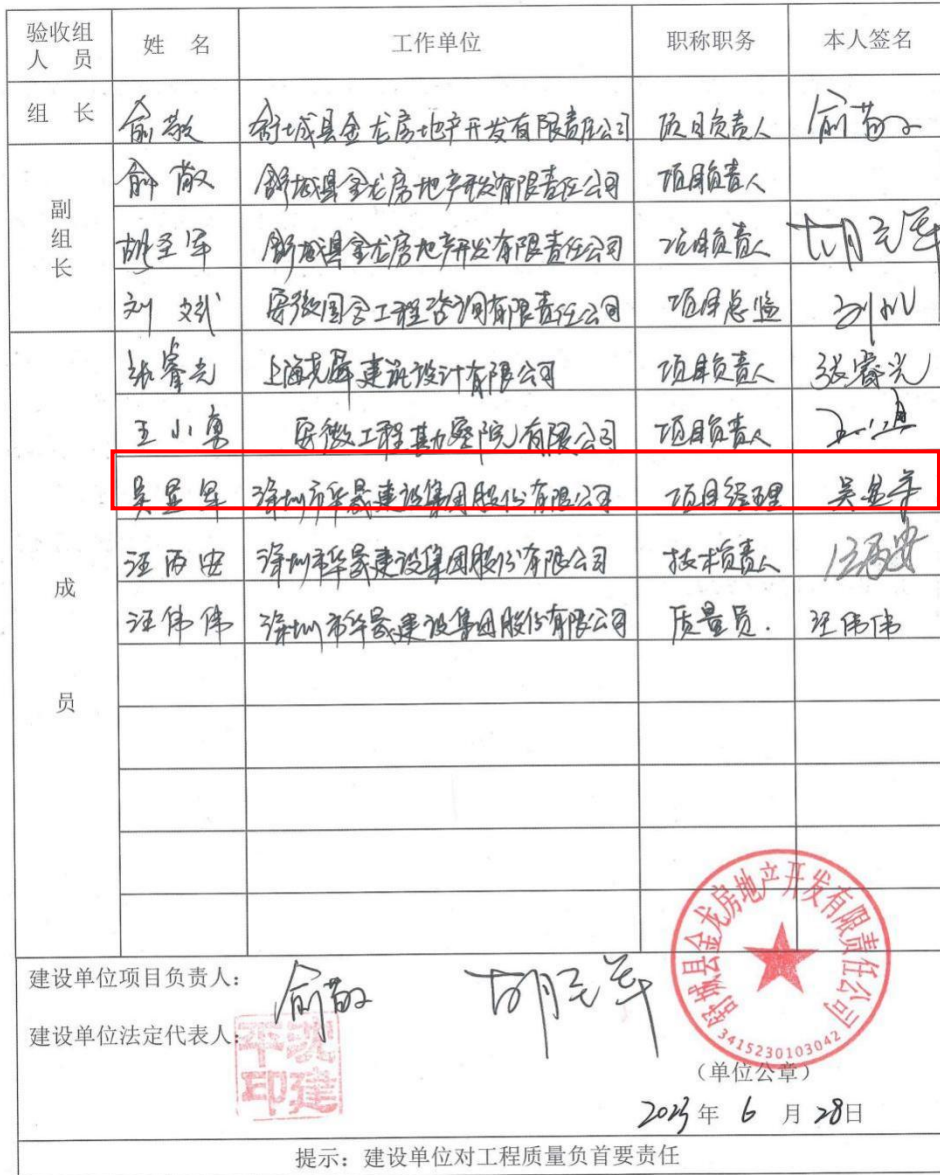 验收组人员 姓 名 工作单位 职称职务 本人签名
组 长 俞敬 舒城县金龙房地产开发有限责任公司 项目负责人 俞敬
副组长 俞敬 舒城县金龙房地产开发有限责任公司 项目负责人
胡玉军 舒城县金龙房地产开发有限责任公司 项目负责人 胡玉军
刘斌 安徽国合工程咨询有限责任公司 项目总监
成员 张睿光 上海 建筑设计有限公司 项目负责人 张睿光
王小勇 安徽工程勘察院有限公司 项目负责人
吴显军 深圳市华晟建设集团股份有限公司 项目经理 吴显军
汪丙安 深圳市华晟建设集团股份有限公司 技术负责人 汪丙安
汪伟伟 深圳市华晟建设集团股份有限公司 质量员. 汪伟伟
建设单位项目负责人: 俞敬 胡玉军
建设单位法定代表人: 沈建平印
舒城县金龙房地产开发有限责任公司
3415230103042
(单位公章)
2023年 6 月 28日
提示: 建设单位对工程质量负首要责任